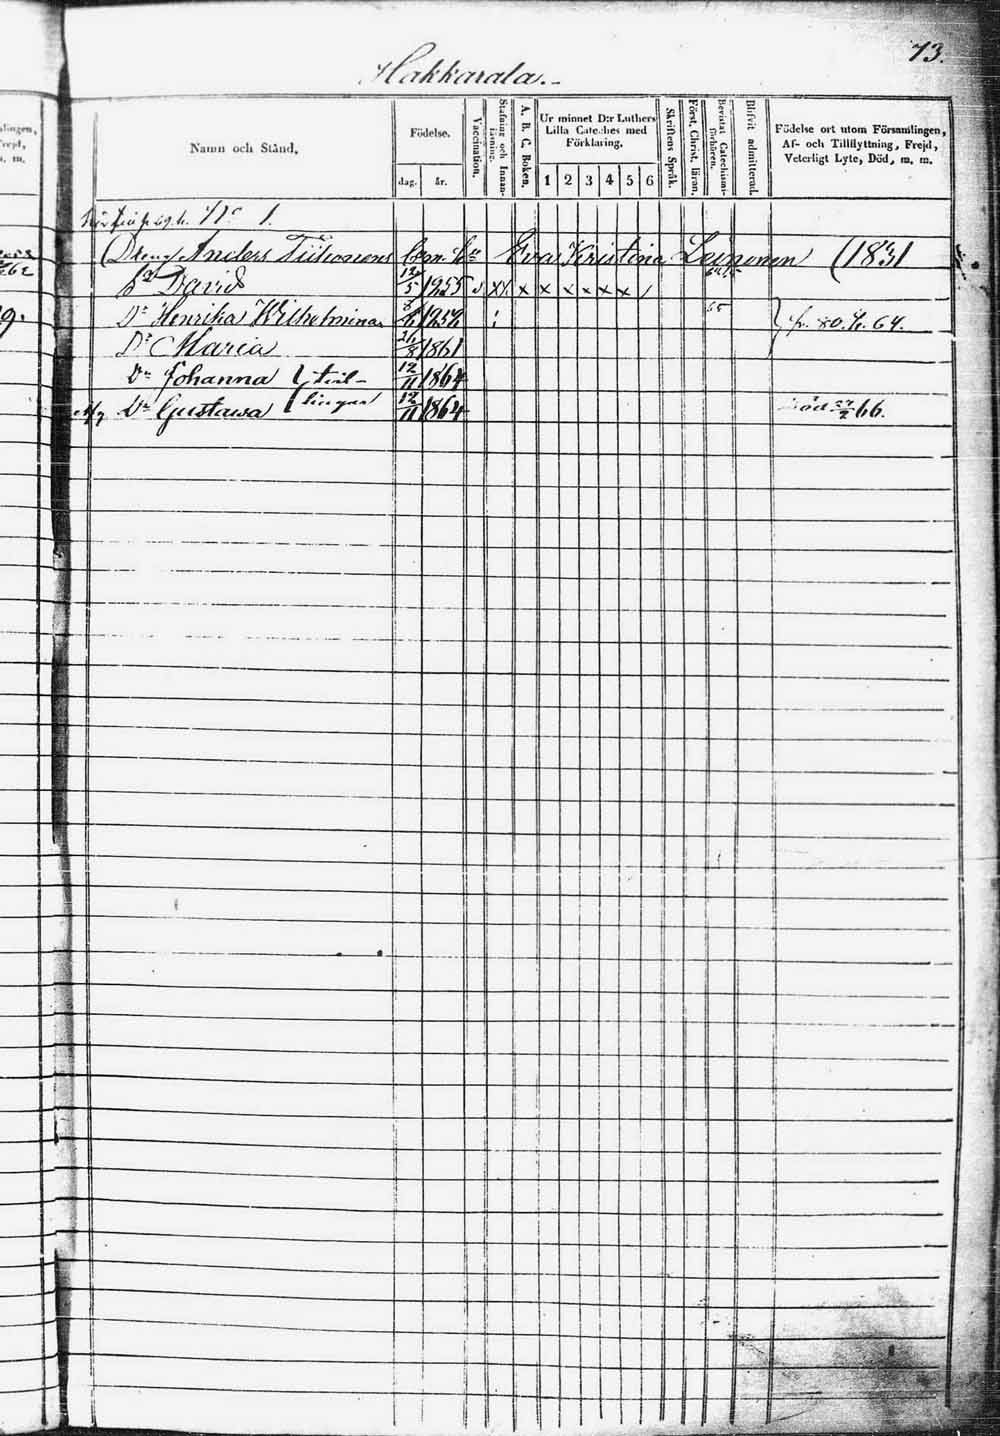 73.
Hakkarala.
Namn och Stånd,
Födelse.
dag. år.
Vaccination.
Stafning och Innanläsning.
A. B. C. Boken.
Ur minnet D:r Luthers
Lilla Cateches med
Förklaring.
1 2 3 4 5 6
Skriftens Språk.
Först. Christ. läran.
Bevistat Catechismi-förhören.
Blifvit admitterad.
Födelse ort utom Församlingen,
Af- och Tillflyttning, Frejd,
Veterligt Lyte, Död, m. m.
N:o 1.
Dreng Anders Tiihonens Eva Kristina Leinonen (1831
David 12/5 1855 x x x x x x
D:r Henrika Wilhelmina 1858 65 64.
D:r Maria 1861
D:r Johanna tvil- 12/11 1864
D:r Gustawa lingar 12/11 1864 död 66.